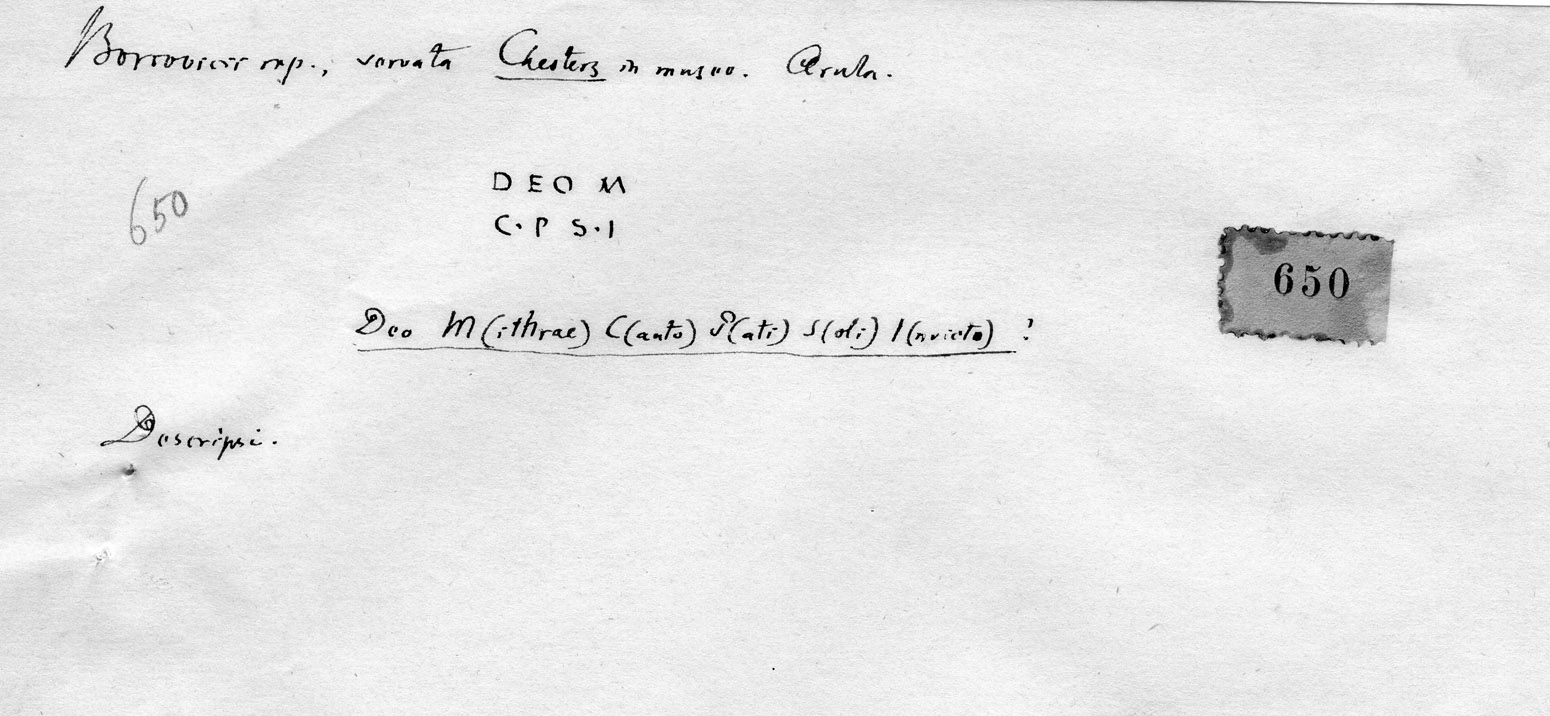 Borrovicii rep., servata Chesters in museo. Arula.
650
DEO M
C·P S·I
650
Deo M(ithrae) C(auto) P(ati) S(oli) I(nvicto) ?
Descripsi.